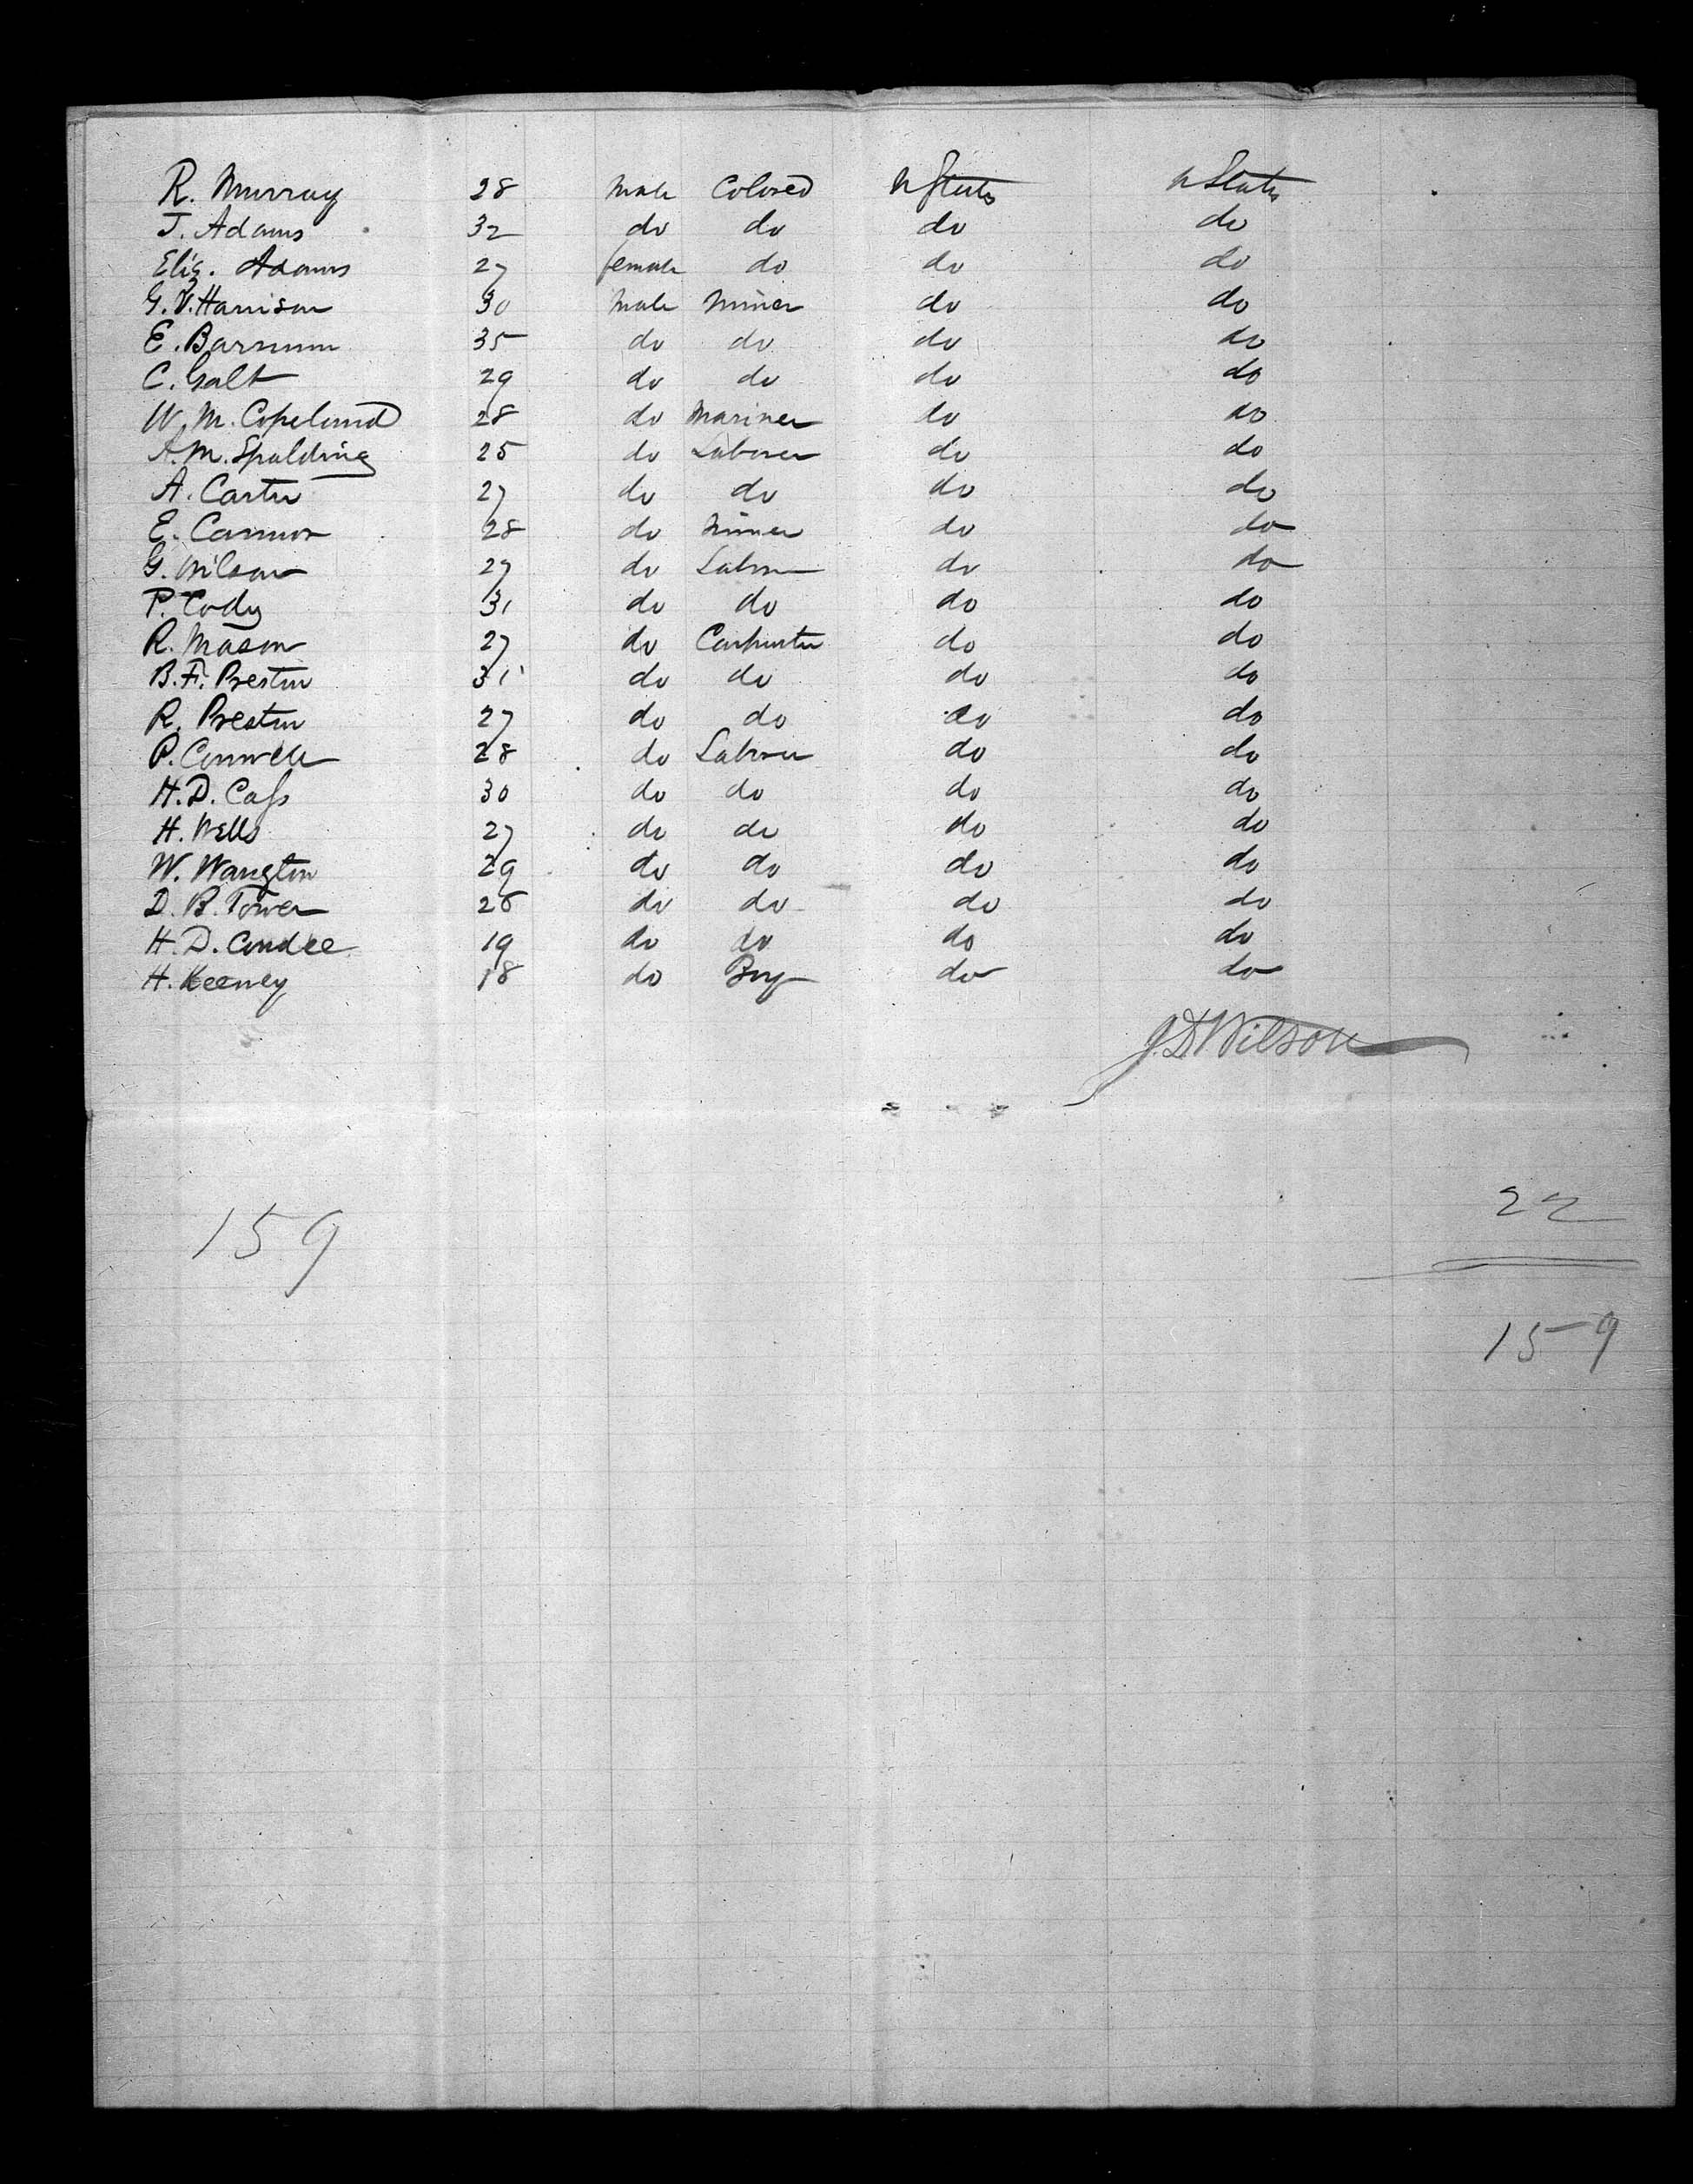 R. Murray 28 Male Colored U States U States
J. Adams 32 do do do do
Eliz. Adams 27 female do do do
G. V. Harrison 30 Male Miner do do
E. Barnum 35 do do do do
C. Galt 29 do do do do
W. M. Copeland 28 do Mariner do do
A. M. Spalding 25 do Laborer do do
A. Carter 27 do do do do
E. Connor 28 do Miner do do
G. Wilson 27 do Laborer do do
P. Cody 31 do do do do
R. Mason 27 do Carpenter do do
B. F. Preston 31 do do do do
R. Preston 27 do do do do
P. Connell 28 do Laborer do do
H. D. Cass 30 do do do do
H. Wells 27 do do do do
W. 29 do do do do
D. B. Tower do do do do
H. D. Condee 19 do do do do
H. Keeney 18 do Boy do do
J. D. Wilson
22
159
159